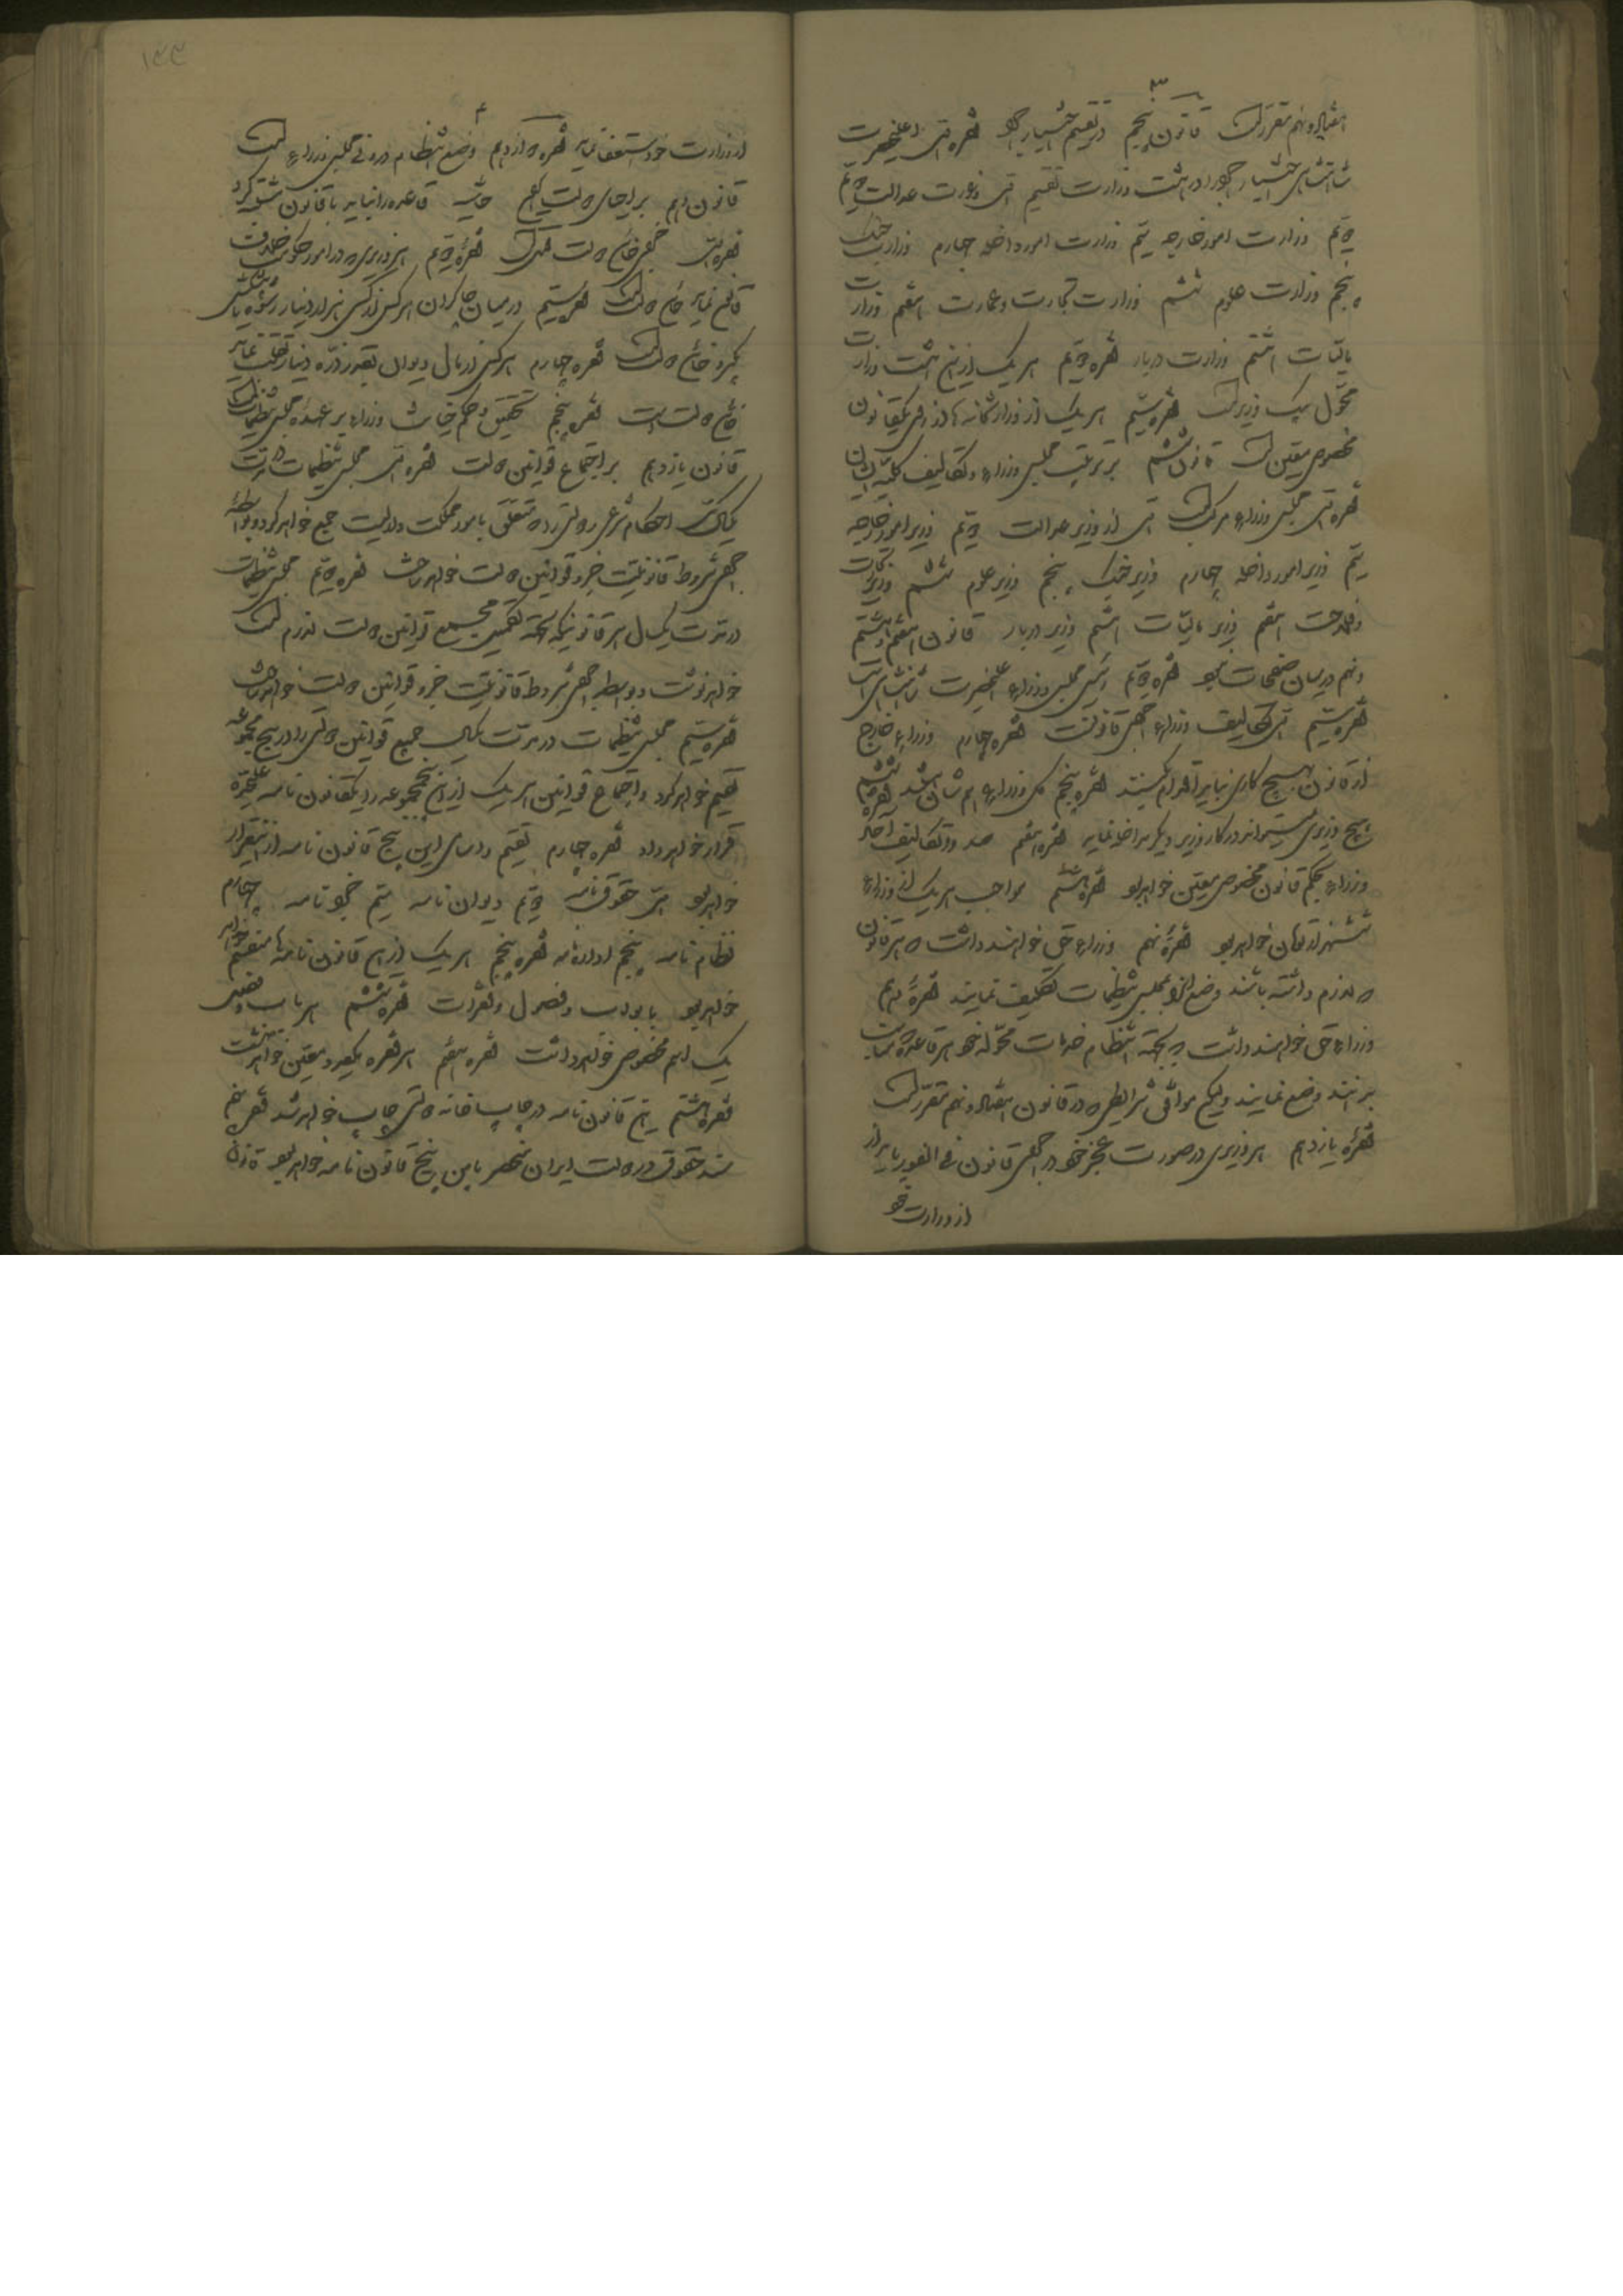 ۳
اقبال و نهم مقرر است قانون پنجم در تقسیم اختیار اجرا فقره اول اعلیحضرت
شاهنشاهی اختیار اجرا را در هشت وزارت تقسیم اول وزارت عدالت دویم
دویم وزارت امور خارجه سیم وزارت امور داخله چهارم وزارت جنگ
پنجم وزارت علوم ششم وزارت تجارت و عمارت هفتم وزارت
مالیات هشتم وزارت دربار فقره دویم هر یک از این هشت وزارت
محول بیک وزیر است فقره سیم هر یک از وزارتخانه‌ها از روی یک قانون
مخصوص معین است قانون ششم بر ترتیب مجلس وزراء و تکالیف کلیه ایشان
فقره اول مجلس وزراء مرکب است اول از وزیر عدالت دویم وزیر امور خارجه
سیم وزیر امور داخله چهارم وزیر جنگ پنجم وزیر علوم ششم وزیر تجارت
و فلاحت هفتم وزیر مالیات هشتم وزیر دربار قانون هفتم و هشتم
و نهم در میان صفحات بود فقره دویم رئیس مجلس وزراء اعلیحضرت شاهنشاهی است
فقره سیم اول تکالیف وزراء اجرای قانونست فقره چهارم وزراء خارج
از قانون بهیچ کاری نباید اقدام بکنند فقره پنجم کل وزراء هم شأن هستند فقره ششم
هیچ وزیری نمیتواند در کار وزیر دیگر مداخله نماید فقره هفتم حدود و تکالیف آحاد
وزراء بحکم قانون مخصوص معین خواهد بود فقره هشتم مواجب هر یک از وزراء
شش هزار تومان خواهد بود فقره نهم وزراء حق خواهند داشت که هر قانون
که لازم داشته باشند وضع آنرا بمجلس تنظیمات تکلیف نمایند فقره دهم
وزراء حق خواهند داشت که بجهة انتظام خدمات محوله خود هر قاعده که مناسب
بدانند وضع نمایند ولیکن موافق شرایطی که در قانون اقبال و نهم مقرر است
فقره یازدهم هر وزیری در صورت عجز خود در اجرای قانون فی الفور باید از
از وزارت خود
۱۴۴
۴
از وزارت خود استعفا نماید فقره دوازدهم وضع انتظام درونی مجلس وزراء است
قانون دهم بر اجرای دولت یعنی خاشیه قاعده را نباید با قانون مشتبه کرد
فقره اول خاین دولت است فقره دویم هر وزیری که در امور حکم خلاف
قانون نماید خاین دولت است فقره سیم در میان چاکران هرکس از کسی هزار دینار رشوه یا پیشکش
بگیرد خاین دولت است فقره چهارم هر کس از مال دیوان بقدر ذره دینار تقلب نماید
خاین دولت است فقره پنجم تحقیق و حکم خیانت وزراء بر عهده مجلس تنظیمات است
قانون یازدهم بر اجتماع قوانین دولت فقره اول مجلس تنظیمات در مدت
یکسال احکام شرعی و دولتی را که متعلق بامور مملکت و ولایت جمع خواهد کرد و بواسطه
اجرای شروط قانونیت جزو قوانین دولت خواهد ساخت فقره دویم مجلس تنظیمات
در مدت یکسال هر قانونیکه بجهة تکمیل مجمع قوانین دولت لازم است
خواهد نوشت و بواسطه اجرای شروط قانونیت جزو قوانین دولت خواهد ساخت
فقره سیم مجلس تنظیمات در مدت یکسال جمیع قوانین دولتی را در پنج مجموعه
تقسیم خواهد کرد و اجتماع قوانین هر یک از این پنج مجموعه را یک قانون نامه علیحده
قرار خواهد داد فقره چهارم تقسیم و اسامی این پنج قانون نامه از اینقرار
خواهد بود اول حقوق نامه دویم دیوان نامه سیم جزا نامه چهارم
نظام نامه پنجم اداره نامه فقره پنجم هر یک از این قانون نامه‌ها منقسم خواهد
خواهد بود بابواب و فصول و فقرات فقره ششم هر باب و فصل
یک اسم مخصوص خواهد داشت فقره هفتم هر فقره یک عدد معین خواهد داشت
فقره هشتم این قانون نامه در چاپ خانه دولتی چاپ خواهد شد فقره نهم
سند حقوق در دولت ایران منحصر باین پنج قانون نامه خواهد بود قانون